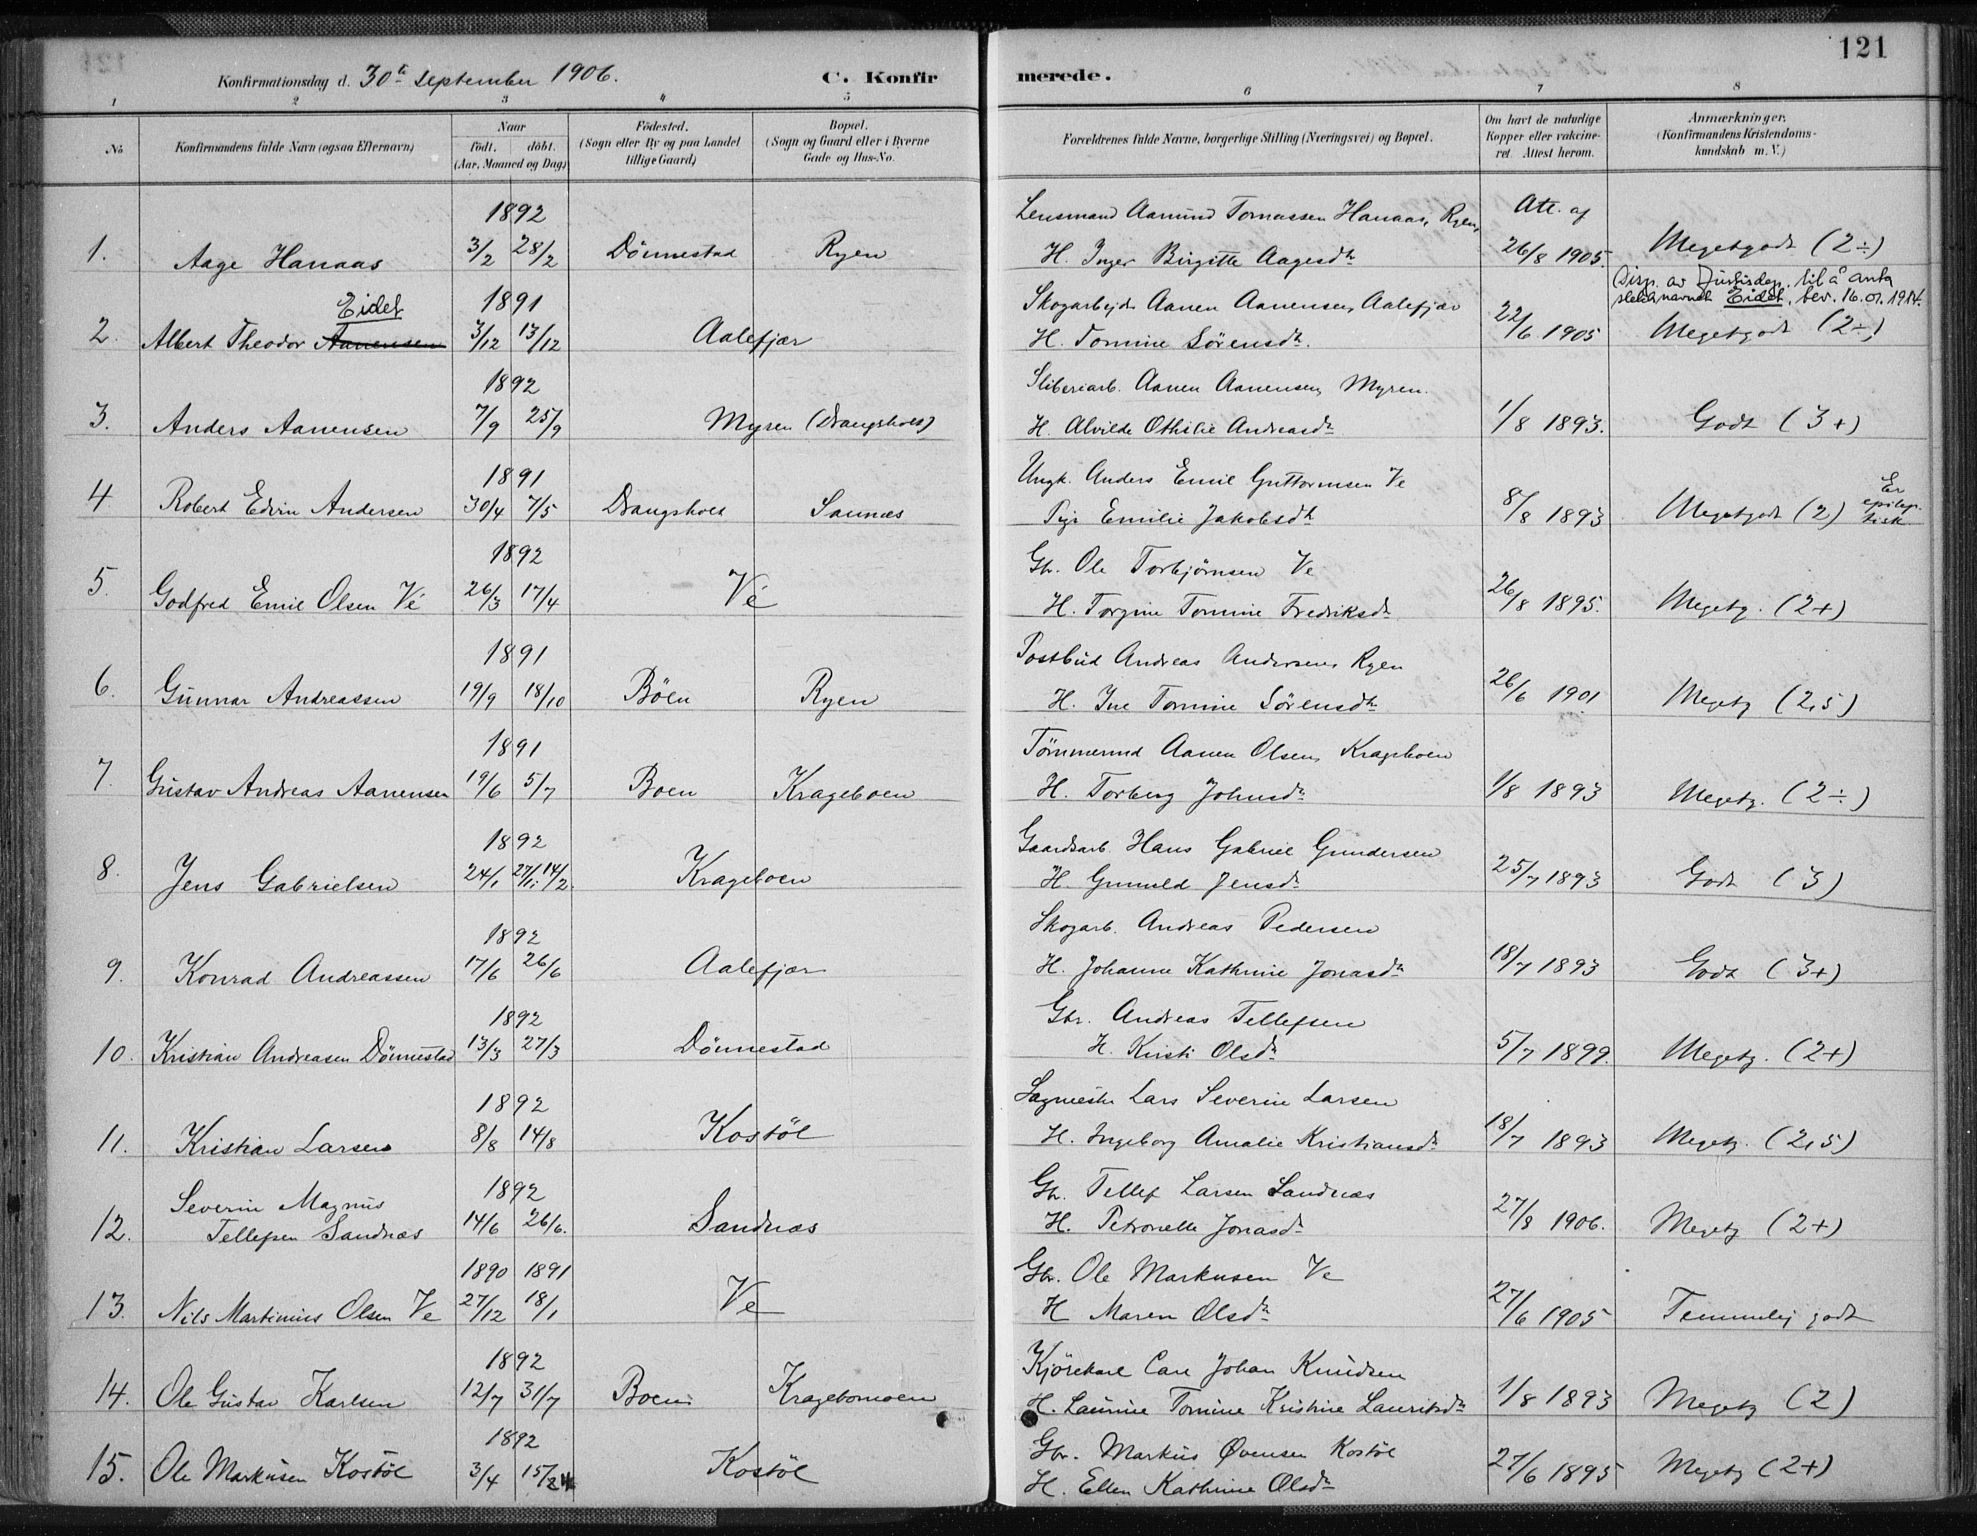 121
Konfirmationsdag d. 30te september 1906. C. Konfirmerede.
1 2 3 4 5 6 7 8
No
Konfirmandens fulde Navn (ogsaa Efternavn)
Naar
födt. döbt.
(Aar, Maaned og Dag)
Födested.
(Sogn eller By og paa Landet
tillige Gaard)
Bopæl.
(Sogn og Gaard eller i Byerne
Gade og Hus-No.
Forældrenes fulde Navne, borgerlige Stilling (Næringsvei) og Bopæl.
Om havt de naturlige
Kopper eller vaccine-
ret. Attest herom.
Anmærkninger.
(Konfirmandens Kristendoms-
kundskab m. V.)
1892 Lensmand Aanund Tomassen Hanaas, Ryen, Att. af
1. Aage Hanaas 3/2 28/2 Dönnestad Ryen H. Inger Birgitte Aagesdtr 26/8 1905. Megetgodt (2÷)
Disp. av Justisdep. til å anta
slektsnavnet Eidet, bev. 16.01.1914.
Eidet 1891 Skogarbejdr Aanen Aanensen, Aalefjær
2. Albert Theodor Aanensen 3/12 13/12 Aalefjær H. Tomine Sörensdtr. 22/6 1905 Megetgodt (2÷)
1892 Sliberiarb. Aanen Aanensen, Myren.
3. Anders Aanensen 7/9 25/9 Myren (Drangsholt) H. Alvilde Othilie Andreasdtr 1/8 1893. Godt (3+)
1891 Ungk. Anders Emil Guttormsen Ve
4. Robert Edvin Andersen 30/4 7/5 Drangsholt Sannæs Pige Emilie Jakobsdtr 8/8 1893 Megetgodt (2) Er
epilep-
tisk
1892 Gbr. Ole Torbjörnsen Ve
5. Godfred Emil Olsen Vé 26/3 17/4 Vé H. Torgine Tomine Fredriksdtr 26/8 1895. Megetg. (2+)
1891 Postbud Andreas Andersen, Ryen
6. Gunnar Andreassen 19/9 18/10 Böen Ryen H. Ine Tomine Sörensdtr 26/6 1901 Megetg (2,5)
1891 Tömmermd Aanen Olsen, Krageboen
7. Gustav Andreas Aanensen 19/6 5/7 Boen Krageboen H. Torberg Johnsdtr 1/8 1893 Megetg. (2÷)
1892 Gaardsarb. Hans Gabriel Gundersen
8. Jens Gabrielsen 24/1 14/2. Krageboen H. Gunuld Jensdtr 25/7 1893 Godt (3)
1892 Skogarb. Andreas Pedersen
9. Konrad Andreassen 17/6 26/6 Aalefjær H. Johanne Kathrine Jonasdtr 18/7 1893 Godt (3+)
1892 Gbr. Andreas Tellefsen
10. Kristian Andreasen Dönnestad 13/3 27/3 Dönnestad H. Kirsti Olsdtr 5/7 1899. Megetg. (2+)
1892 Sagmestr Lars Severin Larsen
11. Kristian Larsen 8/8 14/8 Kostöl H. Ingeborg Amalie Kristiansdtr 18/7 1893 Megetg. (2,5)
Severin Magnus 1892 Gbr. Tellef Larsen Sandnæs
12. Tellefsen Sandnæs 14/6 26/6. Sandnæs H. Petronelle Jonasdtr 27/8 1906. Megetg (2+)
1890 1891 Gbr. Ole Markusen Ve
13. Nils Martinius Olsen Ve 27/12 18/1 Ve H Maren Olsdtr 27/6 1905 Temmelig godt
1892 Kjörekarl Carl Johan Knudsen
14. Ole Gustav Karlsen 12/7 31/7 Boen Kragebomoen H. Laurine Tomine Kristine Lauritsdtr 1/8 1893 Megetg (2)
1892 Gbr. Markus Øvensen Kostöl
15. Ole Markusen Kostöl 3/4 15/4 Kostöl H. Ellen Kathrine Olsdtr 27/6 1895 Megetg (2+)